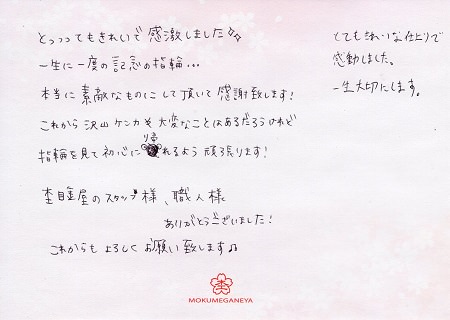 とっっってもきれいで感激しました☆☆
一生に一度の記念の指輪…
本当に素敵なものにして頂いて感謝致します!
これから沢山ケンカや大変なことはあるだろうけれど
指輪を見て初心に帰れるよう頑張ります!
杢目金屋のスタッフ様、職人様
ありがとうございました!
これからもよろしくお願い致します♪
とてもきれいな仕上りで
感動しました。
一生大切にします。
MOKUMEGANEYA